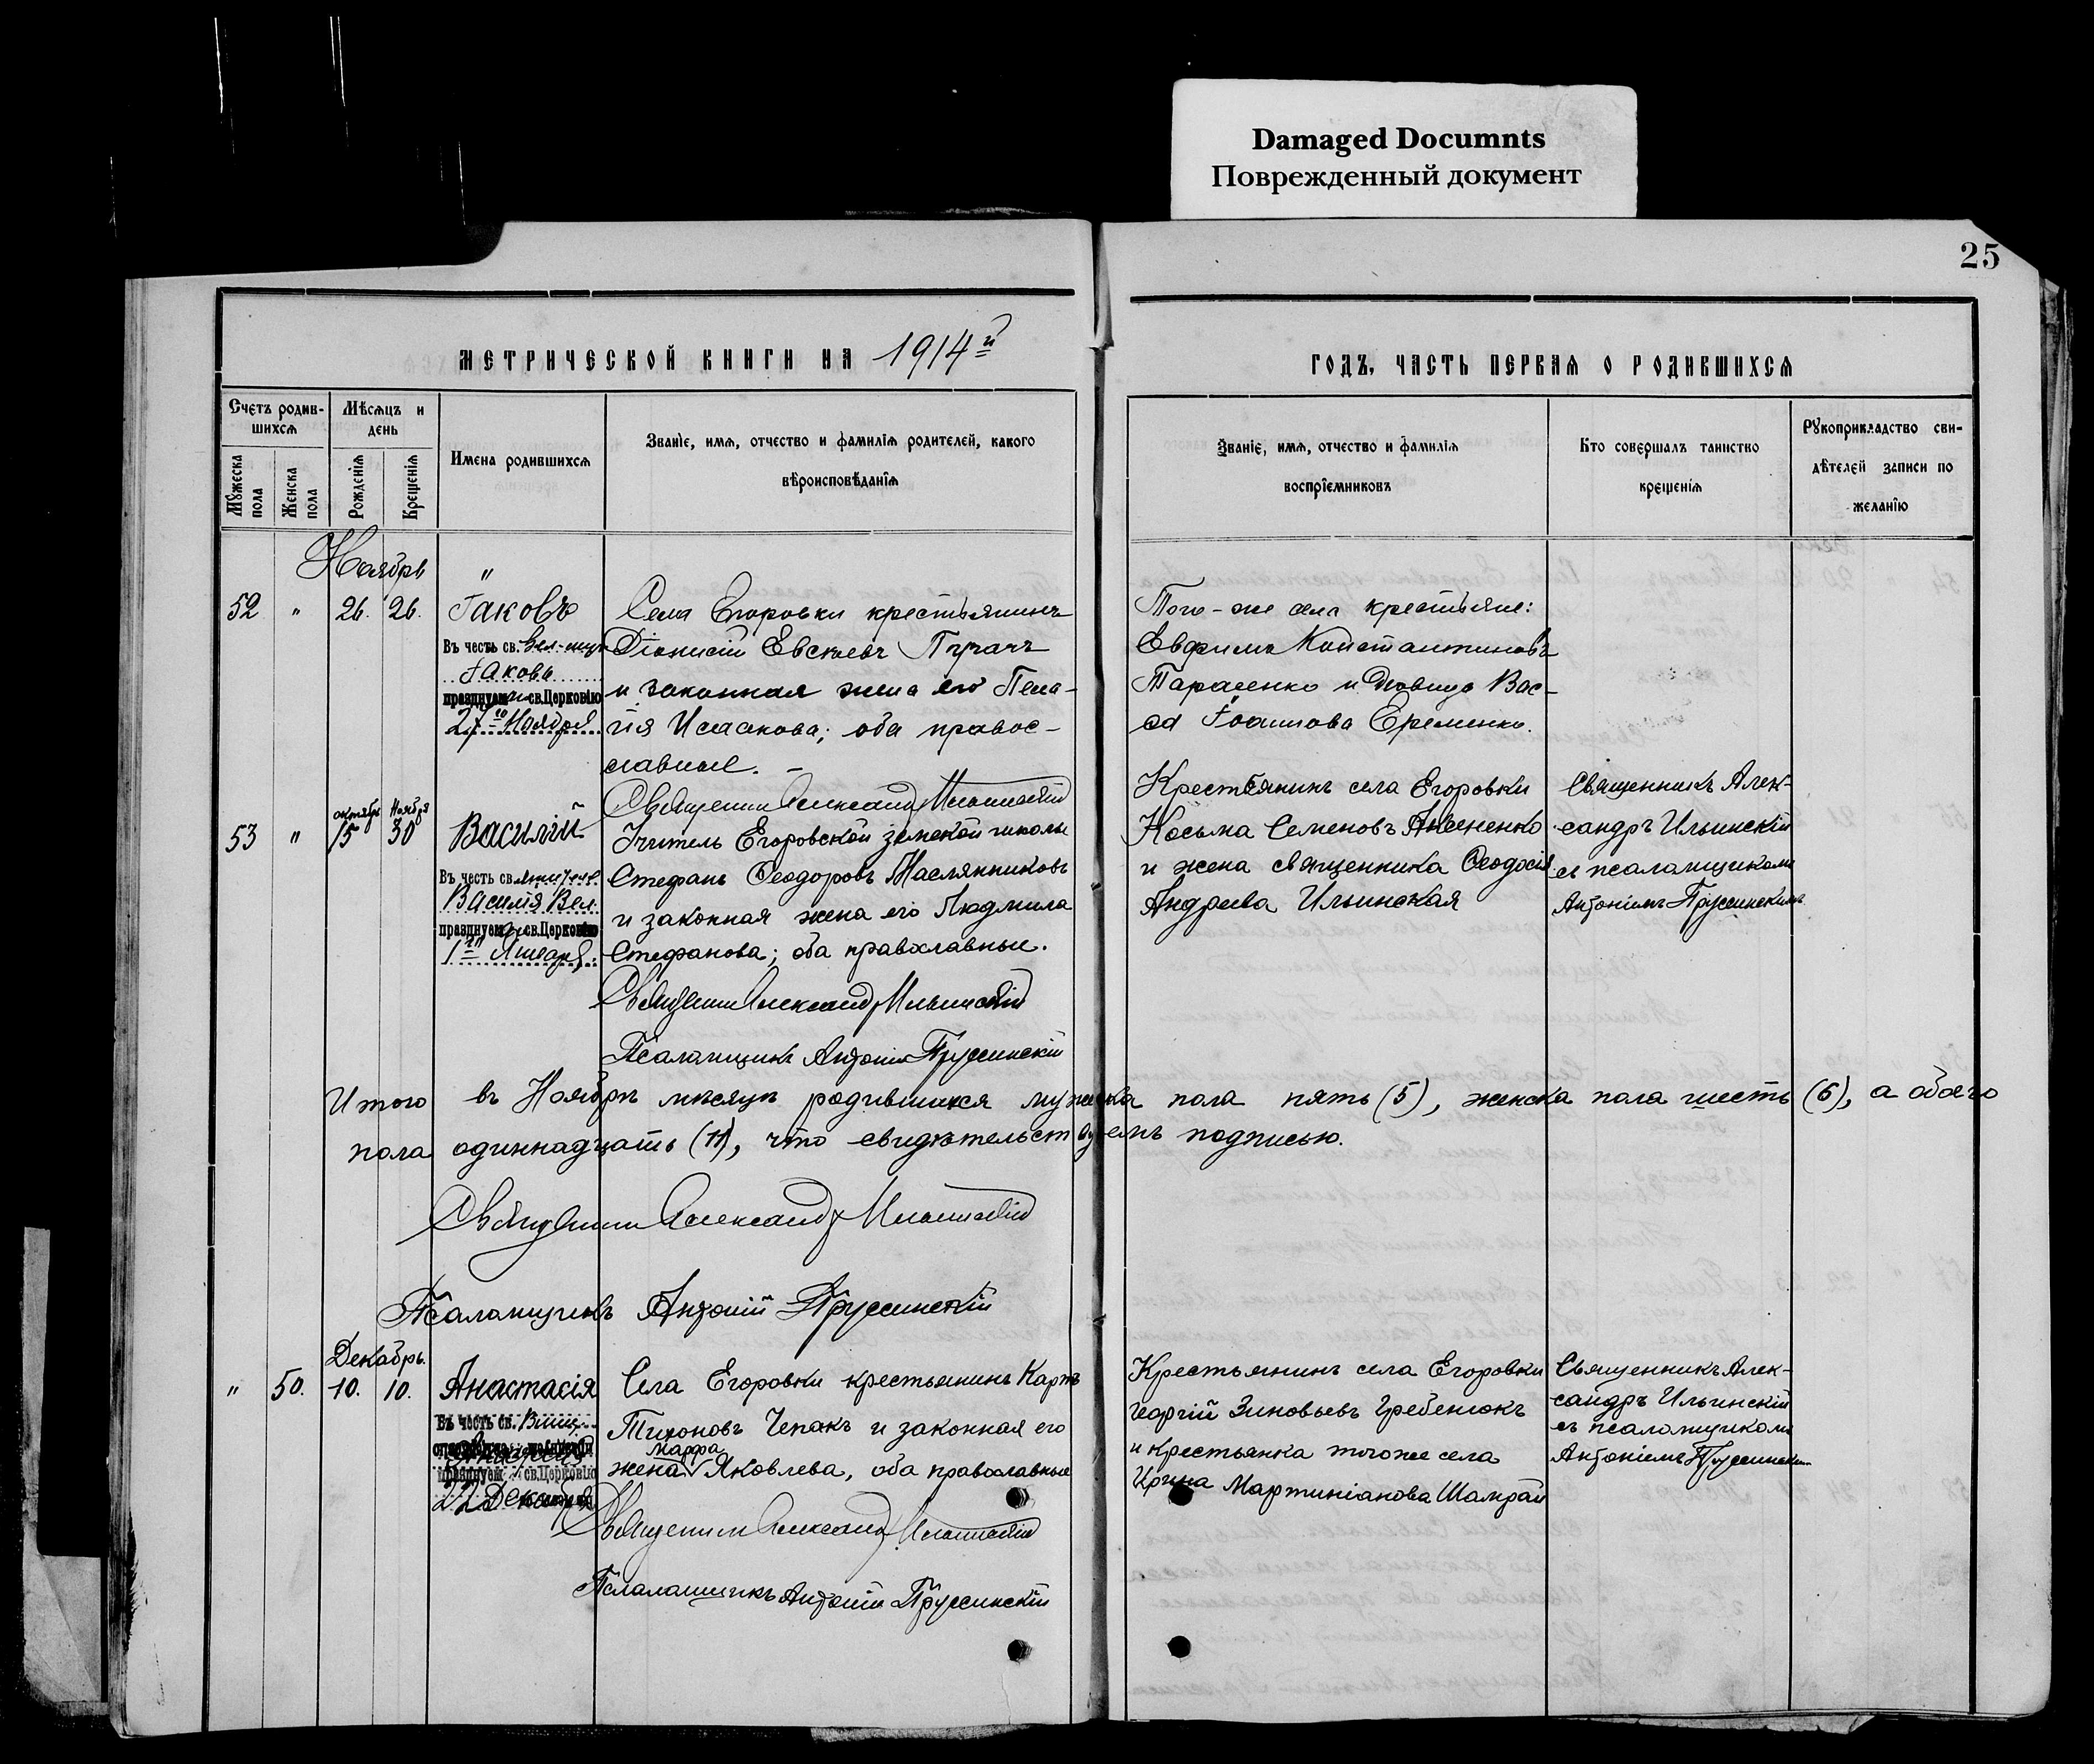 Damaged Documnts
Поврежденный документ
25
МЕТРИЧЕСКОЙ КНИГИ НА 1914й
ГОДЪ, ЧАСТЬ ПЕРВАѦ О РОДИВШИХСѦ
Счетъ родив-
шихсѧ
Мꙋжеска
пола
Женска
пола
Мѣсѧцъ и
день
Рожденїѧ
Крещенїѧ
Имена родившихсѧ
Званїе, имѧ, отчество и фамилїѧ родителей, какого
вѣроисповѣданїѧ
Званїе, имѧ, отчество и фамилїѧ
воспрїемниковъ
Кто совершалъ таинство
крещенїѧ
Рꙋкоприкладство сви-
дѣтелей записи по
желанїю
Ноябрь "
52 " 26. 26. Іаковъ
Въ честь св. Вел-муч
Іакова
празднуем св.Церковію
27го Ноября
Села Егоровки крестьянинъ
Діонисій Евсіевъ Пугачъ
и законная жена его Пела-
гія Исаакова; оба правос-
лавные. –
Священник Александр Ильинскій
Того-же села крестьяне:
Евфимъ Константиновъ
Тарасенко и девица Вас-
са Іоаннова Еременко.
53 " октябр 15 Ноябр 30 Василій
Въ честь св. святителя
Василія Вел.
празднуем св.Церковію
1го Января.
Учитель Егоровской земской школы
Стефанъ Ѳеодоровъ Маслянниковъ
и законная жена его Людмила
Стефанова; оба православные.
Священник Александр Ильинскій
Псаломщикъ Антоній Пруссинскій
Крестьянинъ села Егоровки
Косьма Семеновъ
и жена священника Ѳеодосія
Андреева Ильинская
Священникъ Алек-
сандръ Ильинскій
съ псаломщикомъ
Антоніемъ Пруссинскимъ
Итого въ Ноябрѣ мѣсяцѣ родившихся мужеска пола пять (5), женска пола шесть (6), а обоего
пола одиннадцать (11), что свидѣтельствуемъ подписью.
Священник Александр Ильинскій
Псаломщикъ Антоній Пруссинскій
Декабрь.
" 50. 10. 10. Анастасія
Въ честь св. Вмиц.
празднуем св.Церковію
22 Декабря
Села Егоровки крестьянинъ Карпъ
Тихоновъ Чепакъ и законная его
марфа
жена Яковлева, оба православные
Священник Александр Ильинскій
Псаломщикъ Антоній Пруссинскій
Крестьянинъ села Егоровки
Георгій Зиновьевъ Гребенюкъ
и крестьянка тогоже села
Ирина Мартиніанова Шамрай
Священникъ Алек-
сандръ Ильинскій
съ псаломщикомъ
Антоніемъ Пруссинскимъ